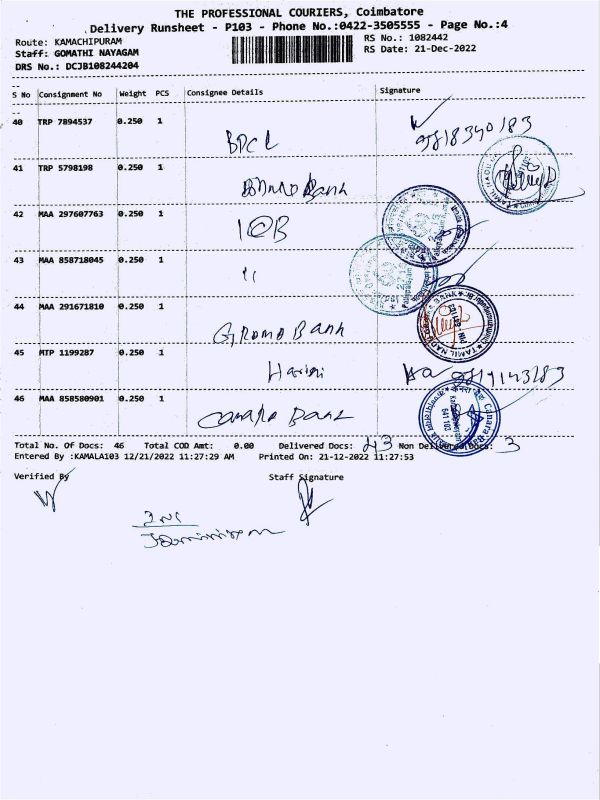 THE PROFESSIONAL COURIERS, Coimbatore
Delivery Runsheet - P103 - Phone No.:0422-3505555 - Page No.:4
Route: KAMACHIPURAM
RS No.: 1082442
Staff: GOMATHI NAYAGAM
RS Date: 21-Dec-2022
DRS No.: DCJB108244204
S No Consignment No Weight PCS Consignee Details Signature
40 TRP 7894537 0.250 1 BPCL 9818340183
41 TRP 5798198 0.250 1 Bank
42 MAA 297607763 0.250 1 IOB
43 MAA 858718045 0.250 1 "
44 MAA 291671810 0.250 1 Bank
45 MTP 1199287 0.250 1 Harini
46 MAA 858580901 0.250 1 Canara Bank
Total No. Of Docs: 46 Total COD Amt: 0.00 Delivered Docs: 43 Non Delivered Docs: 3
Entered By :KAMALA103 12/21/2022 11:27:29 AM Printed On: 21-12-2022 11:27:53
Verified By Staff Signature